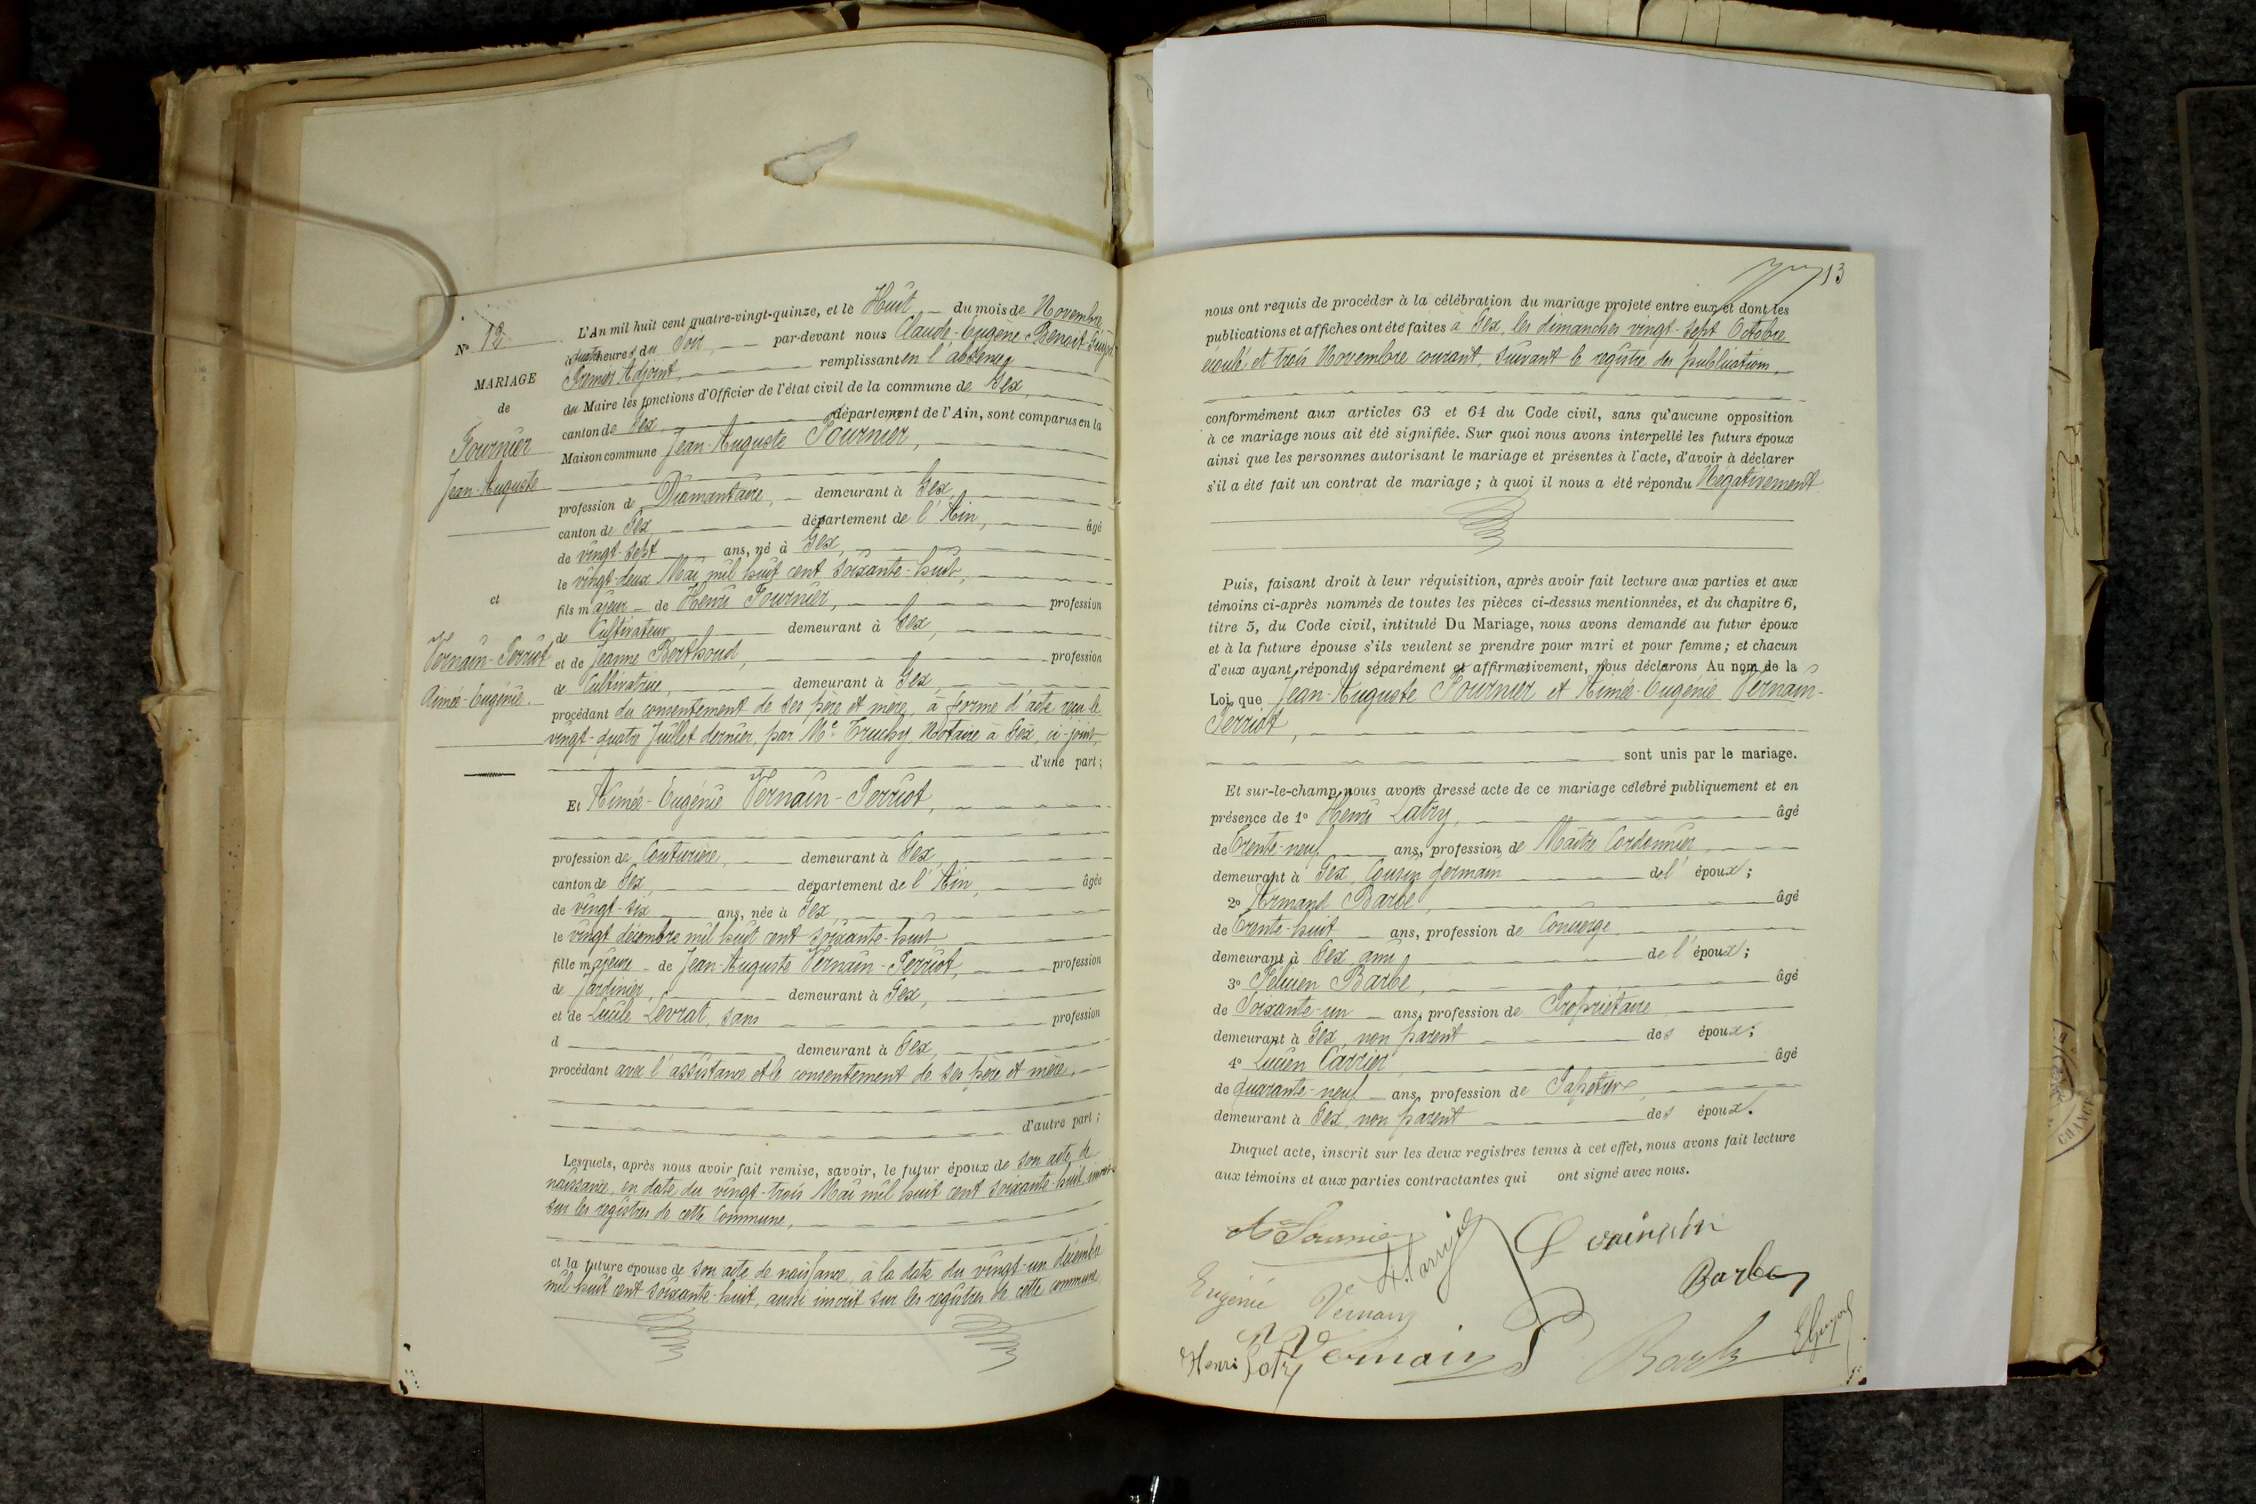 N° 12
MARIAGE
de
Fournier
Jean-Auguste
et
Vernain-Perriot
Aimée-Eugénie.
L'An mil huit cent quatre-vingt-quinze, et le Huit du mois de Novembre
à quatre heures du Soir, par-devant nous Claude-Eugène-Benoit
Premier Adjoint, remplissant en l'absence
du Maire les fonctions d'Officier de l'état civil de la commune de Gex,
canton de Gex, département de l'Ain, sont comparus en la
Maison commune Jean-Auguste Fournier,
profession de Diamantaire, demeurant à Gex,
canton de Gex, département de l'Ain, âgé
de vingt-sept ans, né à Gex,
le vingt-deux Mai mil huit cent soixante-huit,
fils majeur de Henri Fournier, profession
de Cultivateur demeurant à Gex,
et de Jeanne Berthoud, profession
de Cultivatrice, demeurant à Gex,
procédant du consentement de ses père et mère, à forme d'acte reçu le
vingt-quatre Juillet dernier, par Me Truchy, Notaire à Gex, ci-joint,
d'une part ;
Et Aimée-Eugénie Vernain-Perriot,
profession de Couturière, demeurant à Gex,
canton de Gex, département de l'Ain, âgée
de vingt-six ans, née à Gex,
le vingt décembre mil huit cent soixante-huit,
fille majeure de Jean-Auguste Vernain-Perriot, profession
de Jardinier, demeurant à Gex,
et de Lucile Levrat, sans profession
d demeurant à Gex,
procédant avec l'assistance et le consentement de ses père et mère,
d'autre part ;
Lesquels, après nous avoir fait remise, savoir, le futur époux de son acte de
naissance, en date du vingt-trois Mai mil huit cent soixante-huit, inscrit
sur les registres de cette Commune,
et la future épouse de son acte de naissance, à la date du vingt-un décembre
mil huit cent soixante-huit, aussi inscrit sur les registres de cette commune
13
nous ont requis de procéder à la célébration du mariage projeté entre eux et dont les
publications et affiches ont été faites à Gex, les dimanches vingt-sept Octobre
écoulé et trois Novembre courant, suivant le registre des publications,
conformément aux articles 63 et 64 du Code civil, sans qu'aucune opposition
à ce mariage nous ait été signifiée. Sur quoi nous avons interpellé les futurs époux
ainsi que les personnes autorisant le mariage et présentes à l'acte, d'avoir à déclarer
s'il a été fait un contrat de mariage ; à quoi il nous a été répondu Négativement
Puis, faisant droit à leur réquisition, après avoir fait lecture aux parties et aux
témoins ci-après nommés de toutes les pièces ci-dessus mentionnées, et du chapitre 6,
titre 5, du Code civil, intitulé Du Mariage, nous avons demandé au futur époux
et à la future épouse s'ils veulent se prendre pour mari et pour femme ; et chacun
d'eux ayant répondu séparément et affirmativement, nous déclarons Au nom de la
Loi, que Jean-Auguste Fournier et Aimée-Eugénie Vernain-
Perriot,
sont unis par le mariage.
Et sur-le-champ nous avons dressé acte de ce mariage célébré publiquement et en
présence de 1° Henri Latry, âgé
de Trente-neuf ans, profession de Maître Cordonnier,
demeurant à Gex, Cousin germain de l'époux ;
2° Armand Barbe, âgé
de Trente-huit ans, profession de Concierge
demeurant à Gex, ami de l'époux ;
3° Félicien Barbe, âgé
de Soixante-un ans, profession de Propriétaire
demeurant à Gex, non parent des époux ;
4° Lucien Carrier, âgé
de quarante-neuf ans, profession de
demeurant à Gex, non parent des époux.
Duquel acte, inscrit sur les deux registres tenus à cet effet, nous avons fait lecture
aux témoins et aux parties contractantes qui ont signé avec nous.
Barbe
Eugénie Vernain
Henri Latry
Vernain
Barbe